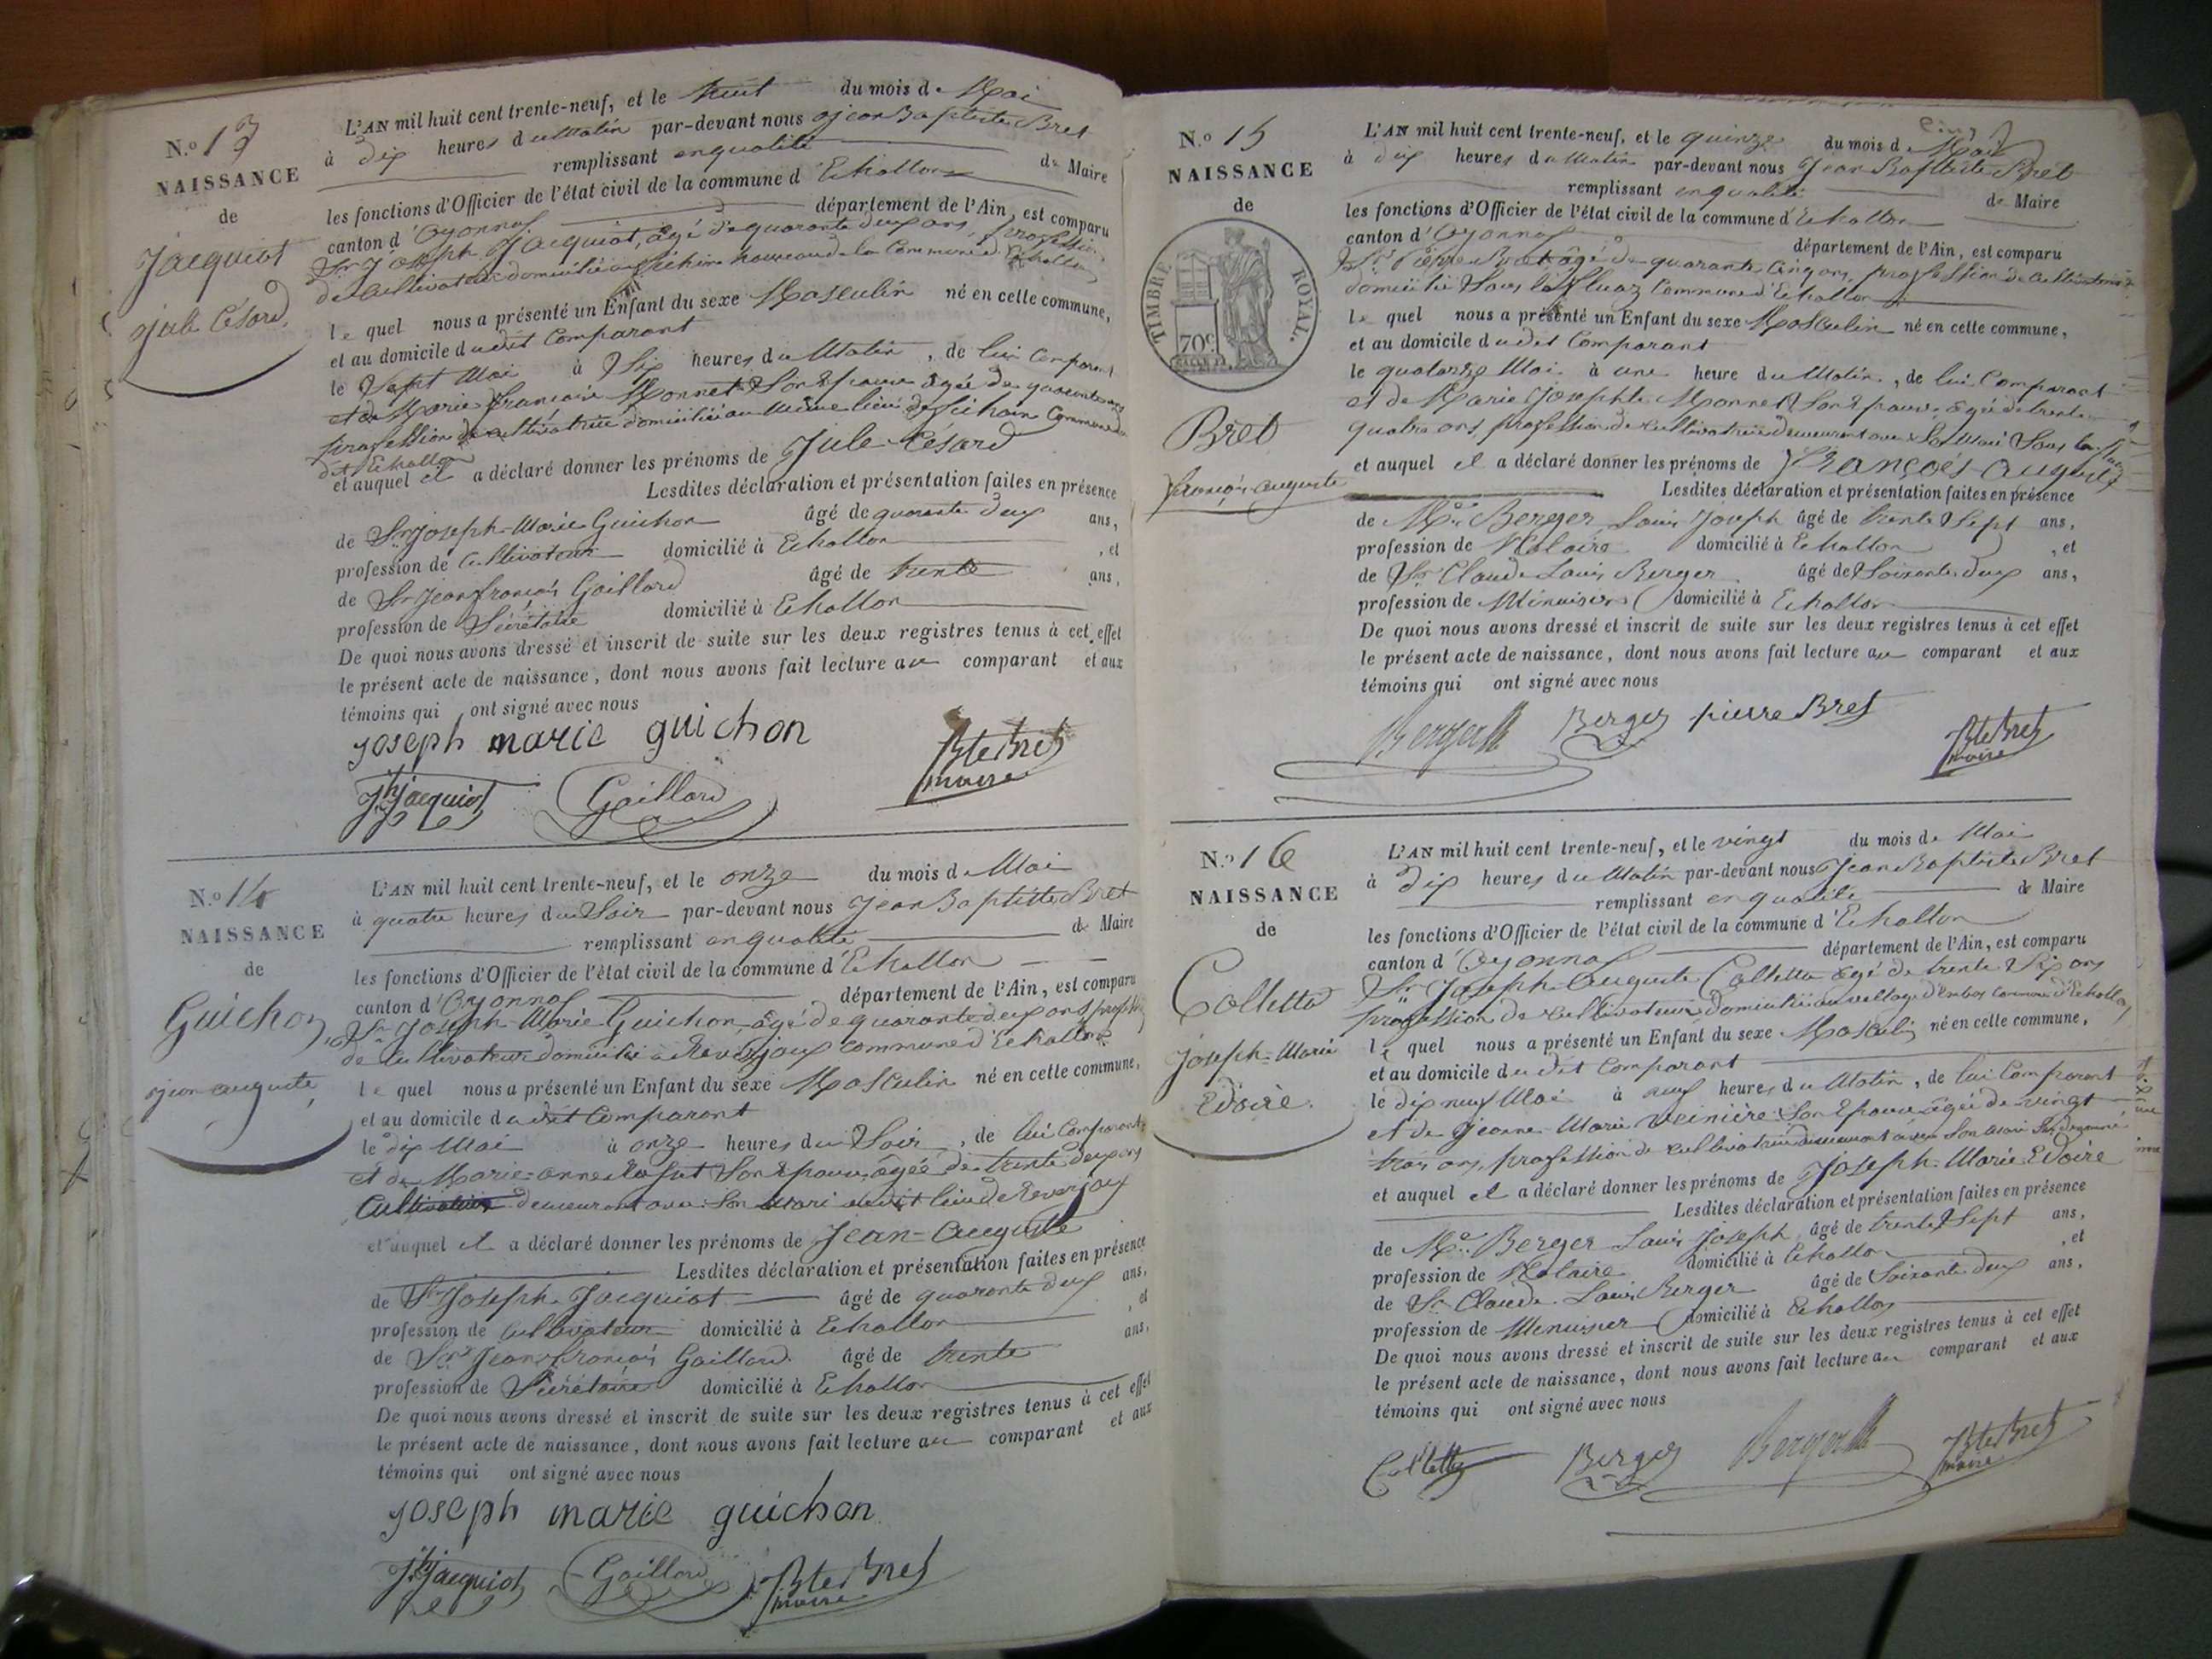 N.º 13
NAISSANCE
de
Jacquiot
Jule Césard.
L'AN mil huit cent trente-neuf, et le huit du mois de Mai
à dix heures du Matin par-devant nous Jean Baptiste Bret
remplissant en qualité de Maire
les fonctions d'Officier de l'état civil de la commune d'Echallon
canton d'Oyonnax département de l'Ain, est comparu
Sr Joseph Jacquiot, âgé de quarante deux ans, profession
de Cultivateur domicilié au hameau de la Commune d'Echallon
le quel nous a présenté un Enfant du sexe Masculin né en cette commune,
et au domicile dudit Comparant
le Sept Mai à Six heures du Matin, de lui Comparant
et de Marie françoise Monnet Son Epouse âgée de quarante ans
profession de cultivatrice domiciliée au Même lieu de Commune
dit Echallon
et auquel il a déclaré donner les prénoms de Jule-Césard
Lesdites déclaration et présentation faites en présence
de Sr Joseph-Marie Guichon âgé de quarante deux ans,
profession de Cultivateur domicilié à Echallon, et
de Sr Jean françois Gaillard âgé de trente ans,
profession de Sécrétaire domicilié à Echallon
De quoi nous avons dressé et inscrit de suite sur les deux registres tenus à cet effet
le présent acte de naissance, dont nous avons fait lecture au comparant et aux
témoins qui ont signé avec nous
joseph marie guichon
Jh jacquiot Gaillard Bte Bret
maire
N.º 14
NAISSANCE
de
Guichon
jean auguste
L'AN mil huit cent trente-neuf, et le onze du mois de Mai
à quatre heures du Soir par-devant nous Jean Baptiste Bret
remplissant en qualité de Maire
les fonctions d'Officier de l'état civil de la commune d'Echallon
canton d'Oyonnax département de l'Ain, est comparu
Sr Joseph-Marie Guichon, âgé de quarante deux ans profession
de Cultivateur domicilié à Reverjoux commune d'Echallon
le quel nous a présenté un Enfant du sexe Masculin né en cette commune,
et au domicile dudit Comparant
le dix Mai à onze heures du Soir, de lui Comparant
et de Marie-anne Son Epouse, âgée de trente deux ans
Cultivatrice demeurant avec Son Mari audit lieu de Reverjoux
et auquel il a déclaré donner les prénoms de Jean-Auguste
Lesdites déclaration et présentation faites en présence
de Sr Joseph Jacquiot âgé de quarante deux ans,
profession de Cultivateur domicilié à Echallon, et
de Sr Jean françois Gaillard âgé de trente ans,
profession de Sécrétaire domicilié à Echallon
De quoi nous avons dressé et inscrit de suite sur les deux registres tenus à cet effet
le présent acte de naissance, dont nous avons fait lecture au comparant et aux
témoins qui ont signé avec nous
joseph marie guichon
Jh jacquiot Gaillard Bte Bret
maire
cinq
N.º 15
NAISSANCE
de
TIMBRE ROYAL.
70c
Bret
françois auguste
L'AN mil huit cent trente-neuf, et le quinze du mois de Mai
à dix heures du Matin par-devant nous Jean Baptiste Bret
remplissant en qualité de Maire
les fonctions d'Officier de l'état civil de la commune d'Echallon
canton d'Oyonnax département de l'Ain, est comparu
Sr Pierre Bret âgé de quarante cinq ans, profession de Cultivateur
domicilié Sous Commune d'Echallon
le quel nous a présenté un Enfant du sexe Masculin né en cette commune,
et au domicile dudit Comparant
le quatorze Mai à une heure du Matin, de lui Comparant
et de Marie Josephte Monnet Son Epouse, âgée de trente
quatre ans, profession de cultivatrice demeurant avec Son Mari Sous
et auquel il a déclaré donner les prénoms de François-Auguste
Lesdites déclaration et présentation faites en présence
de Me Berger Louis Joseph âgé de trente Sept ans,
profession de Notaire domicilié à Echallon, et
de Sr Claude Louis Berger âgé de Soixante deux ans,
profession de Ménuisier domicilié à Echallon
De quoi nous avons dressé et inscrit de suite sur les deux registres tenus à cet effet
le présent acte de naissance, dont nous avons fait lecture au comparant et aux
témoins qui ont signé avec nous
Berger Berger pierre Bret Bte Bret
maire
N.º 16
NAISSANCE
de
Colletta
Joseph-Marie
Edoire.
L'AN mil huit cent trente-neuf, et le vingt du mois de Mai
à dix heures du Matin par-devant nous Jean Baptiste Bret
remplissant en qualité de Maire
les fonctions d'Officier de l'état civil de la commune d'Echallon
canton d'Oyonnax département de l'Ain, est comparu
Sr Joseph-Auguste Colletta âgé de trente Six ans
profession de cultivateur domicilié au village commune d'Echallon
le quel nous a présenté un Enfant du sexe Masculin né en cette commune,
et au domicile dudit Comparant
le dix neuf Mai à neuf heures du Matin, de lui Comparant
et de Jeanne-Marie Son Epouse âgée de vingt
trois ans, profession de cultivatrice demeurant avec Son Mari
et auquel il a déclaré donner les prénoms de Joseph-Marie Edoire
Lesdites déclaration et présentation faites en présence
de Me Berger Louis Joseph âgé de trente Sept ans,
profession de Notaire domicilié à Echallon, et
de Sr Claude Louis Berger âgé de Soixante deux ans,
profession de Menuisier domicilié à Echallon
De quoi nous avons dressé et inscrit de suite sur les deux registres tenus à cet effet
le présent acte de naissance, dont nous avons fait lecture au comparant et aux
témoins qui ont signé avec nous
Colletta Berger Berger Bte Bret
maire